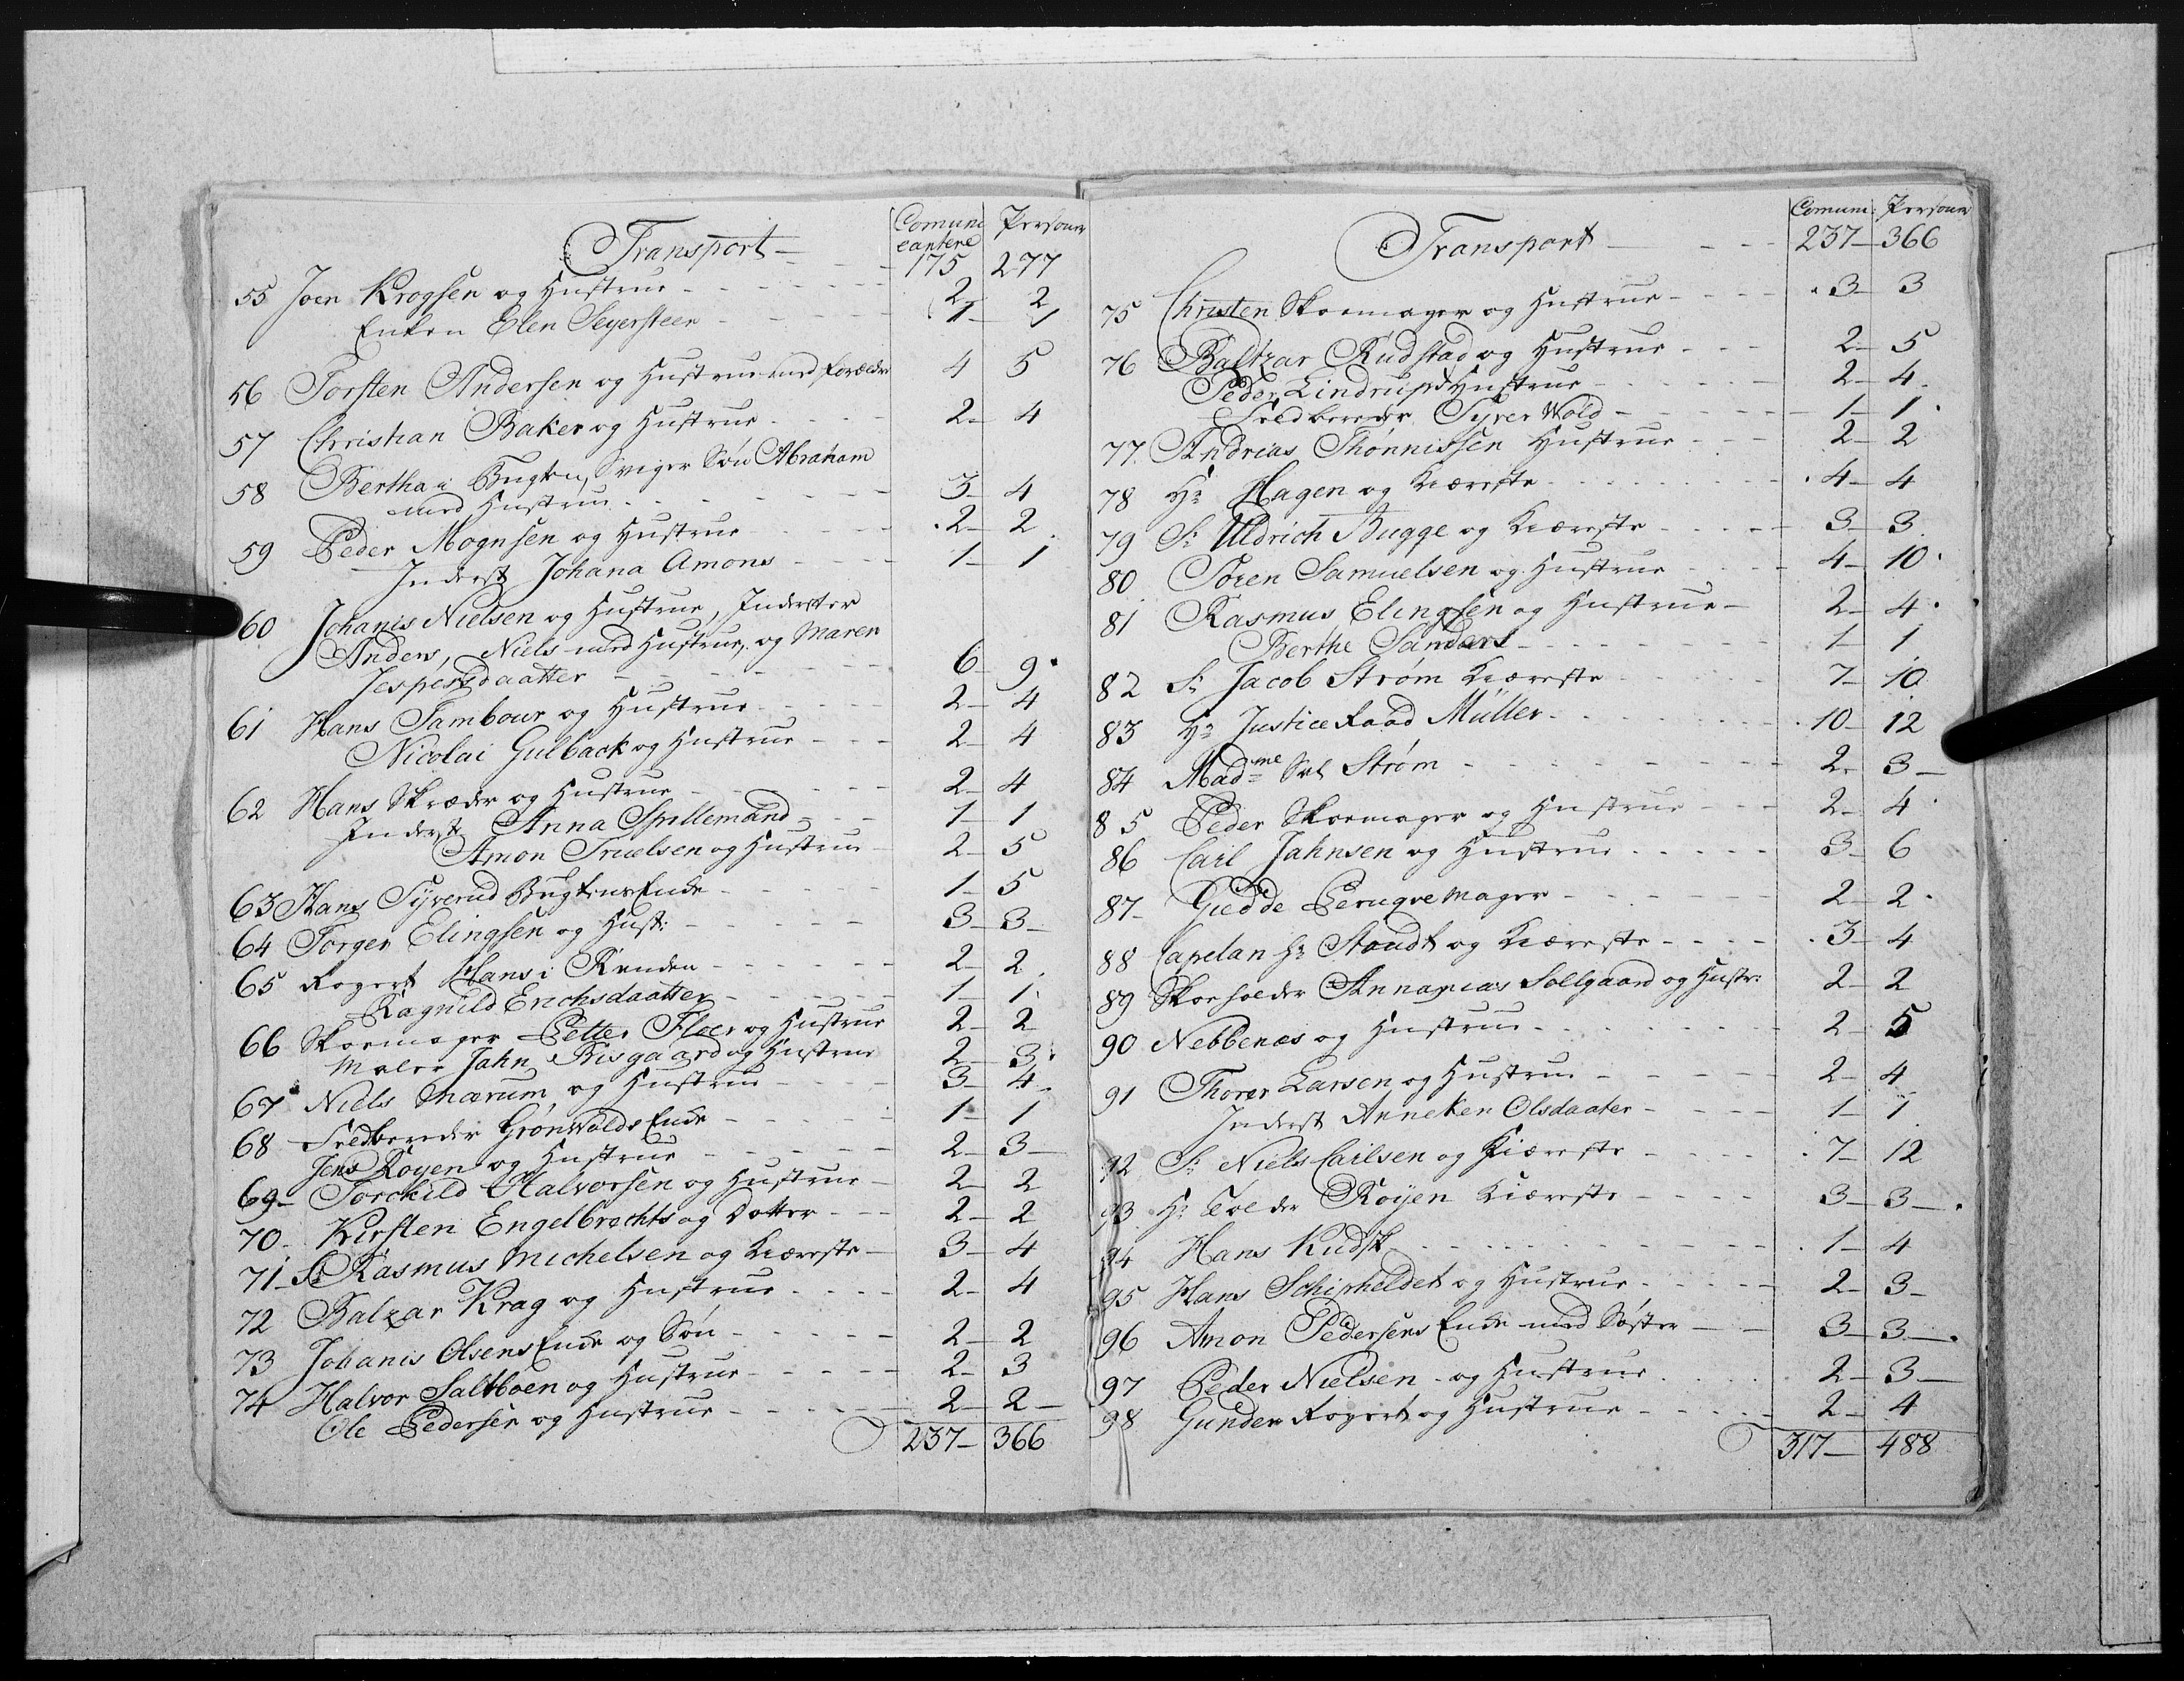 Comuni Personer
Transport cantere
175 277
55 Joen Krogsen og Hustrue 2 2
Enken Elen Seyersteen 1 1
56 Torsten Andersen og Hustrue med Forældre 4 5
57 Christian Baker og Hustrue 2 4
58 Bertha i Bugten, Sviger Søn Abraham
med Hustrue 3 4
59 Peder Mognsen og Hustrue 2 2
Inderst Johana Amons 1 1
60 Johanis Nielsen og Hustrue, Inderster
Anders, Niels med Hustrue, og Maren
Jespersdaatter 6 9
61 Hans Tambour og Hustrue 2 4
Nicolai Gulback og Hustrue 2 4
62 Hans Skræder og Hustrue 2 4
Inderst Anna Spillemand 1 1
Amon Truelsen og Hustrue 2 5
63 Hans Syverud Bugtens Enke 1 5
64 Torger Elingsen og Hust: 3 3
65 Rogert Hans i Renden 2 2
Ragnild Erichsdaatter 1 1
66 Skoemager Petter Floer og Hustrue 2 2
Maler Jahn Risgaard og Hustrue 2 3
67 Niels Mærum og Hustrue 3 4
68 Feldbereder Grönwolds Enke 1 1
Jens Royen og Hustrue 2 3
69 Torckild Halvorsen og Hustrue 2 2
70 Kirsten Engelbrechts og Dotter 2 2
71 Sr Rasmus Michelsen og Kiæreste 3 4
72 Balzar Krag og Hustrue 2 4
73 Johanis Olsens Enke og Søn 2 2
74 Halvor Saltboen og Hustrue 2 3
Ole Pedersen og Hustrue 2 2
237 366
Comuni: Personer
Transport 237 366
75 Christen Skoemager og Hustrue 3 3
76 Baltzar Rudstad og Hustrue 2 5
Peder Lindrup Hustrue 2 4
Feldbereder Syver Wold 1 1
77 Andrias Thönnissen Hustrue 2 2
78 Hr Hagen og Kiæreste 4 4
79 Sr Uldrich Bugge og Kiæreste 3 3
80 Sören Samuelsen og Hustrue 4 10
81 Rasmus Elingsen og Hustrue 2 4
Berthe Sanders 1 1
82 Sr Jacob Strøm Kiæreste 7 10
83 Hr Justice Raad Müller 10 12
84 Madme Sal Strøm 2 3
85 Peder Skoemager og Hustrue 2 4
86 Carl Jahnsen og Hustrue 3 6
87 Giedde Peruqvemager 2 2
88 Capelan Hr Staudt og Kiæreste 3 4
89 Skoeholder Annanias Sollgaard og Hustr: 2 2
90 Nebbenæs og Hustrue 2 5
91 Thorer Larsen og Hustrue 2 4
Inderst Anneken Olsdaater 1 1
92 Sr Niels Carlsen og Kiæreste 7 12
93 Hr Tolder Röyen Kiæreste 3 3
94 Hans Kudsk 1 4
95 Hans Schipheldet og Hustrue 2 3
96 Amon Pedersens Enke med Søster 3 3
97 Peder Nielsen og Hustrue 2 3
98 Gunder Rogert og Hustrue 2 4
317 488